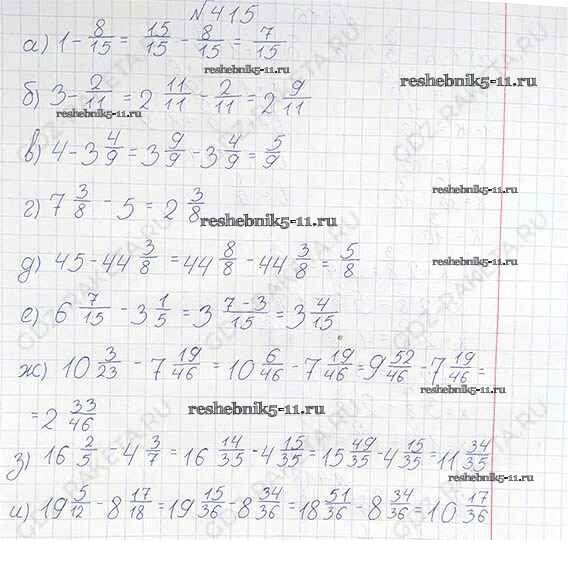 №415
а) 1 - 8/15 = 15/15 - 8/15 = 7/15
reshebnik5-11.ru
reshebnik5-11.ru
б) 3 - 2/11 = 2 11/11 - 2/11 = 2 9/11
reshebnik5-11.ru
в) 4 - 3 4/9 = 3 9/9 - 3 4/9 = 5/9
reshebnik5-11.ru
г) 7 3/8 - 5 = 2 3/8
reshebnik5-11.ru
д) 45 - 44 3/8 = 44 8/8 - 44 3/8 = 5/8
reshebnik5-11.ru
е) 6 7/15 - 3 1/5 = 3 7-3/15 = 3 4/15
ж) 10 3/23 - 7 19/46 = 10 6/46 - 7 19/46 = 9 52/46 - 7 19/46 =
reshebnik5-11.ru
= 2 33/46
reshebnik5-11.ru
з) 16 2/5 - 4 3/7 = 16 14/35 - 4 15/35 = 15 49/35 - 4 15/35 = 11 34/35
и) 19 5/12 - 8 17/18 = 19 15/36 - 8 34/36 = 18 51/36 - 8 34/36 = 10 17/36
GDZ-RAKETA.RU
GDZ-RAKETA.RU
GDZ-RAKETA.RU
GDZ-RAKETA.RU